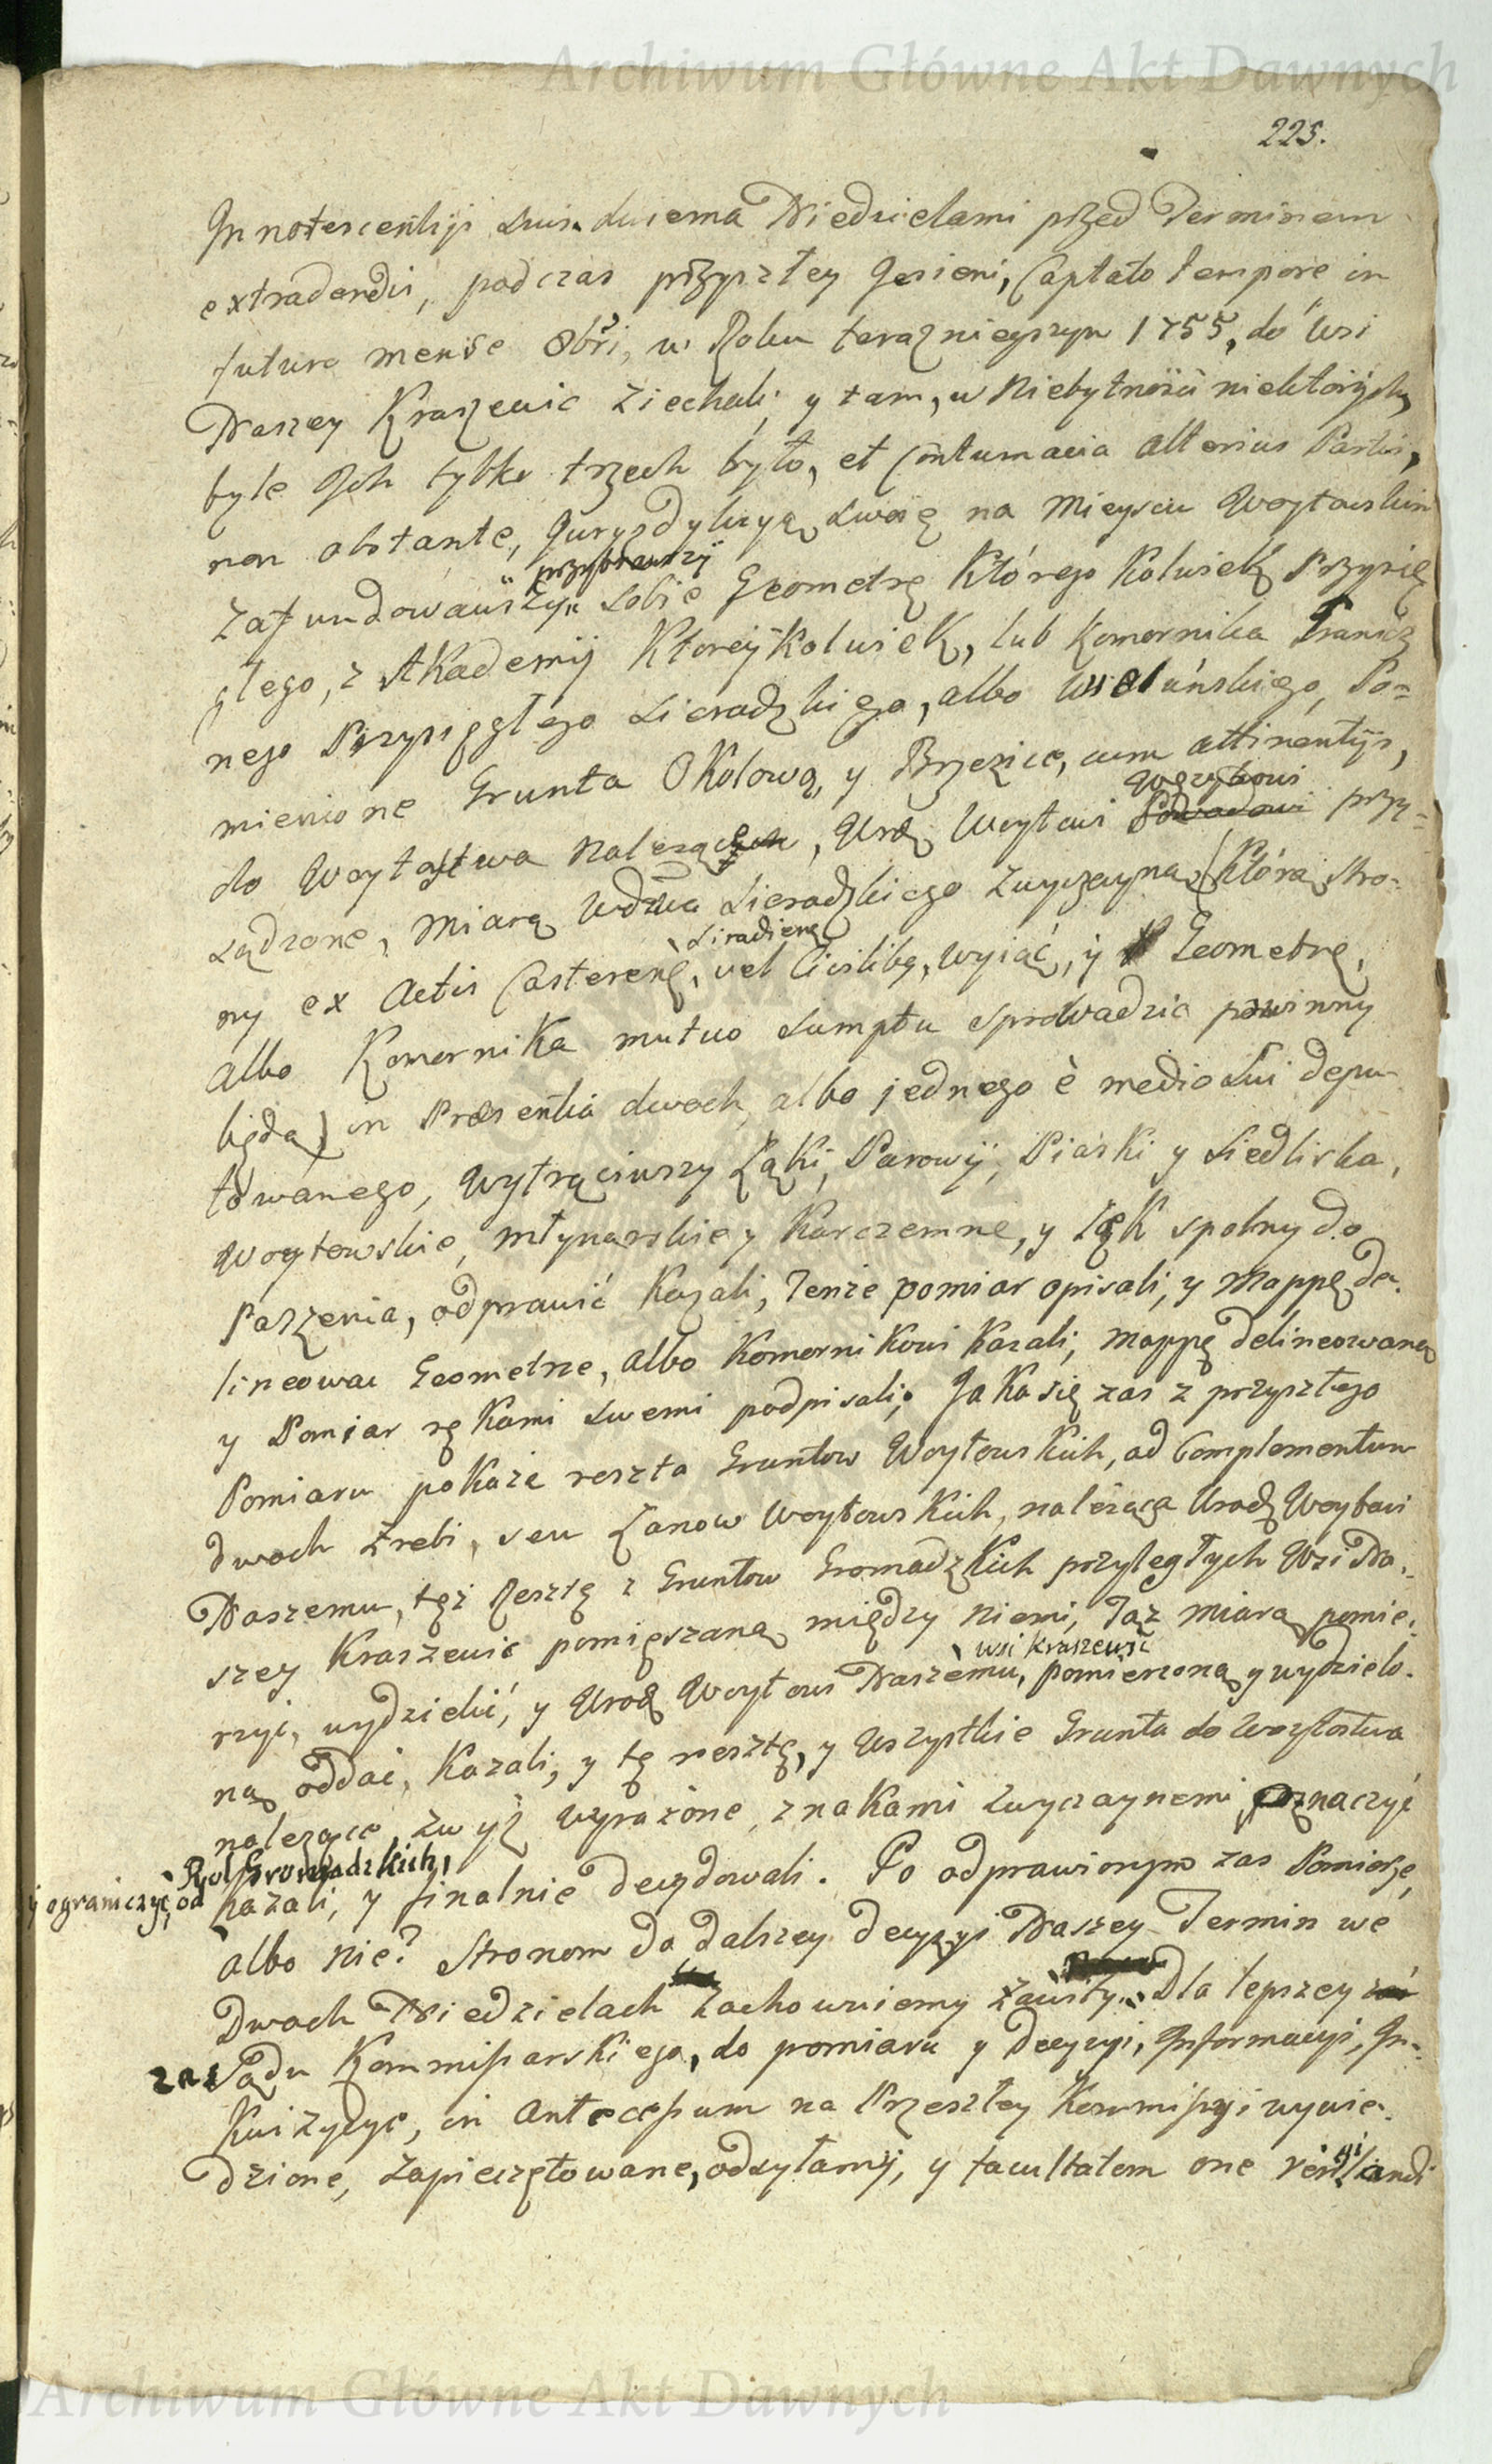 Archiwum Główne Akt Dawnych
225.
Innotescentiji suis. dwiema Niedzielami przed Terminem
extradendis, podczas przyszłey Jesieni, Captato tempore in
futuro mense 8bri, w Roku teraznieyszym 1755, do Wsi
Naszey Kraszewic ziechali, y tam, w Niebytnosci niektorych,
byle Ich tylko trzech było, et Contumacia alterius Partis,
non obstante, Juryzdykcyą swoię na Mieyscu Woytowskim
przybrawszy
zafundowawszy, sobie Geometrę Którego Kolwiek Przysię
głego, z Akademij Ktorey Kolwiek, lub Komornika Granicz
nego Przysięgłego Sieradzkiego, albo Wieluńskiego, Po=
mienione Grunta Okołową, y Brzezice, cum attinentijs,
Woytowi
do Woytostwa Nalezące, Urodz Woytowi przy=
sądzone, Miarą Wdztwa Sieradzkiego zwyczayną (Którą stro-
Siradien
ny ex Actis Castren, vel Civilib, wyiąć, y Geometrę,
albo Komornika mutuo sumptu sprowadzic powinny
będą) in Præsentia dwoch, albo jednego è medio sui depu-
towanego, wytrąciwszy Łąki, Parowy, Piaski y Siedliska,
Woytowskie, młynarskie y Karczemne, y Ług spolny do
Paszenia, odprawić Kazali, Tenże pomiar opisali, y Mappę de-
lineowac Geometrze, albo Komornikowi Kazali, mappę delineowaną
y Pomiar rękami swemi podpisali; Jaka się zas z przyszłego
Pomiaru pokaze reszta Gruntow Woytowskich, ad Complementum
dwoch Źrebi, seu Łanow Woytowskich, należąca Urodz Woytowi
Naszemu, tęż Resztę z Gruntow Gromadzkich przyległych Wsi Na-
szey Kraszewic pomięszaną między Niemi, Taż miarą pomie-
wsi Kraszewic
rzyc, wydzielić, y Urodz Woytowi Naszemu, pomierzoną y wydzielo-
ną oddać, Kazali, y tę resztę, y wszystkie Grunta do Woytostwa
nalezące, zwyż wyrażone, znakami zwyczaynemi, oznaczyć
Rol Gromadzkich,
y ograniczyc, od
kazali, y finalnie decydowali. Po odprawionym zas Pomierze,
albo nie? Stronom do dalszey decyzyi Naszey Termin we
Dwoch Niedzielach zachowuiemy zawity. Dla lepszey
zas Sądu Kommissarskiego, do pomiaru y decyzyi, Informacyi, In-
kwizycye, in Antecessum na Przeszłey Kommissyi wywie-
dzione, zapieczętowane, odsyłamy, y facultatem one resigillandi
Archiwum Główne Akt Dawnych